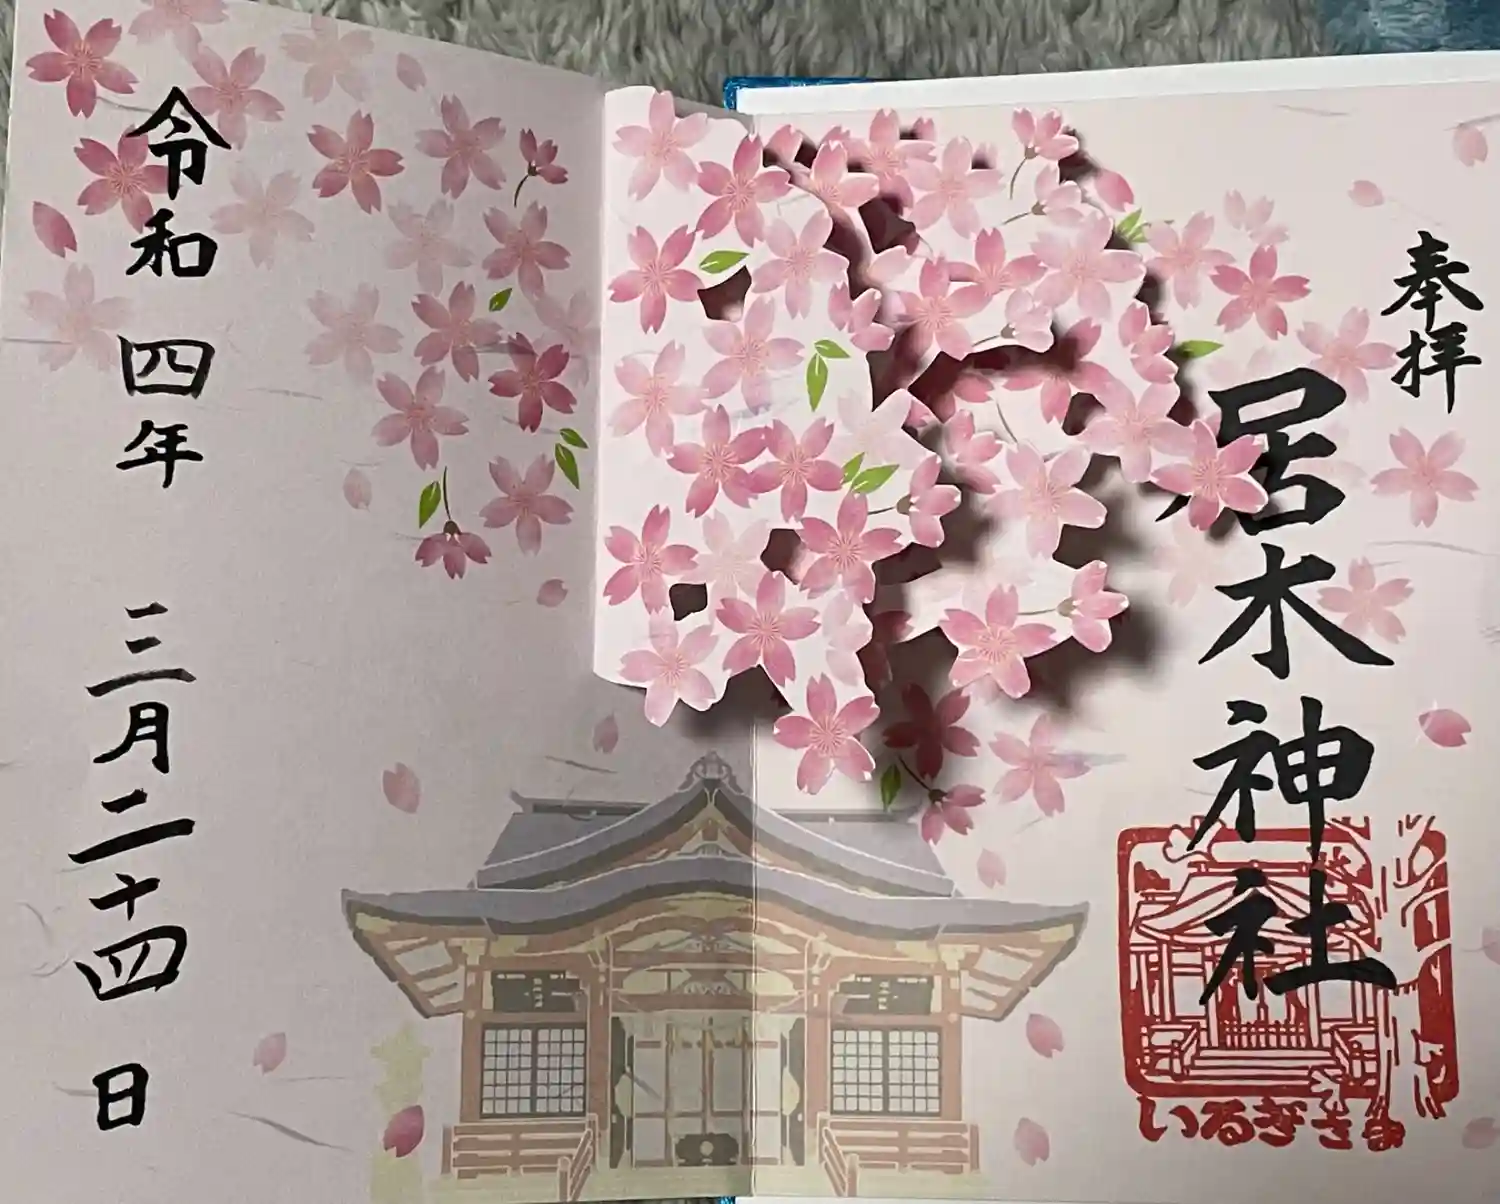 奉拝
居木神社
いるぎさま
令和四年三月二十四日